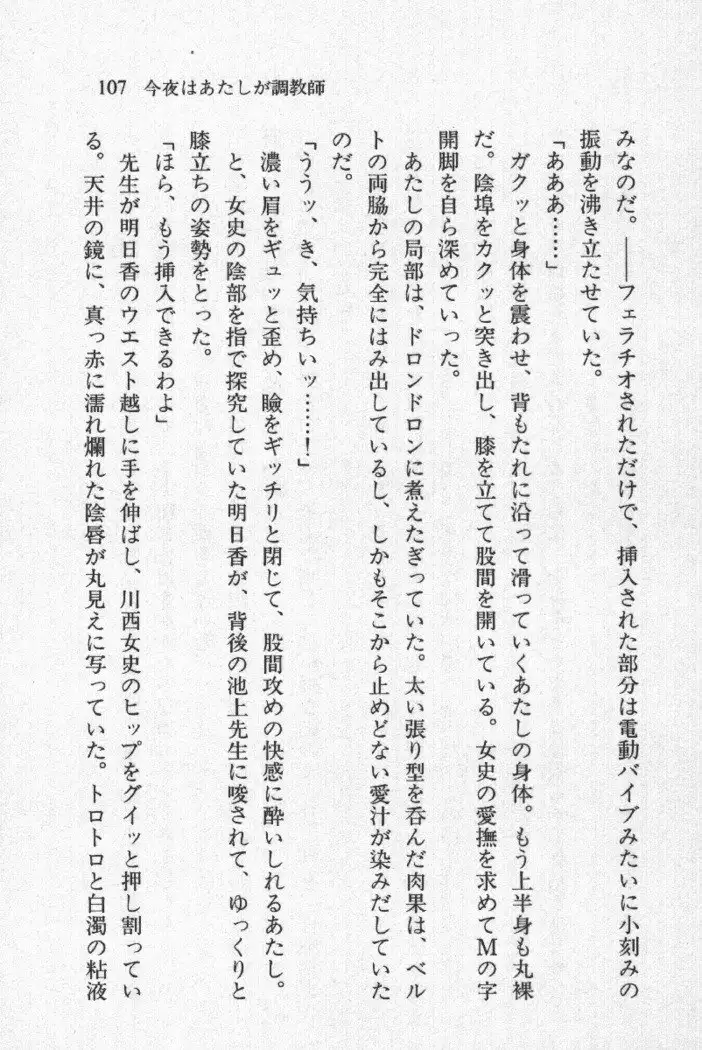 107 今夜はあたしが調教師
みなのだ。――フェラチオされただけで、挿入された部分は電動バイブみたいに小刻みの
振動を沸き立たせていた。
「あああ……」
ガクッと身体を震わせ、背もたれに沿って滑っていくあたしの身体。もう上半身も丸裸
だ。陰埠をカクッと突き出し、膝を立てて股間を開いている。女史の愛撫を求めてMの字
開脚を自ら深めていった。
あたしの局部は、ドロンドロンに煮えたぎっていた。太い張り型を呑んだ肉果は、ベル
トの両脇から完全にはみ出しているし、しかもそこから止めどない愛汁が染みだしていた
のだ。
「ううッ、き、気持ちいッ……！」
濃い眉をギュッと歪め、瞼をギッチリと閉じて、股間攻めの快感に酔いしれるあたし。
と、女史の陰部を指で探究していた明日香が、背後の池上先生に唆されて、ゆっくりと
膝立ちの姿勢をとった。
「ほら、もう挿入できるわよ」
先生が明日香のウエスト越しに手を伸ばし、川西女史のヒップをグイッと押し割ってい
る。天井の鏡に、真っ赤に濡れ爛れた陰唇が丸見えに写っていた。トロトロと白濁の粘液